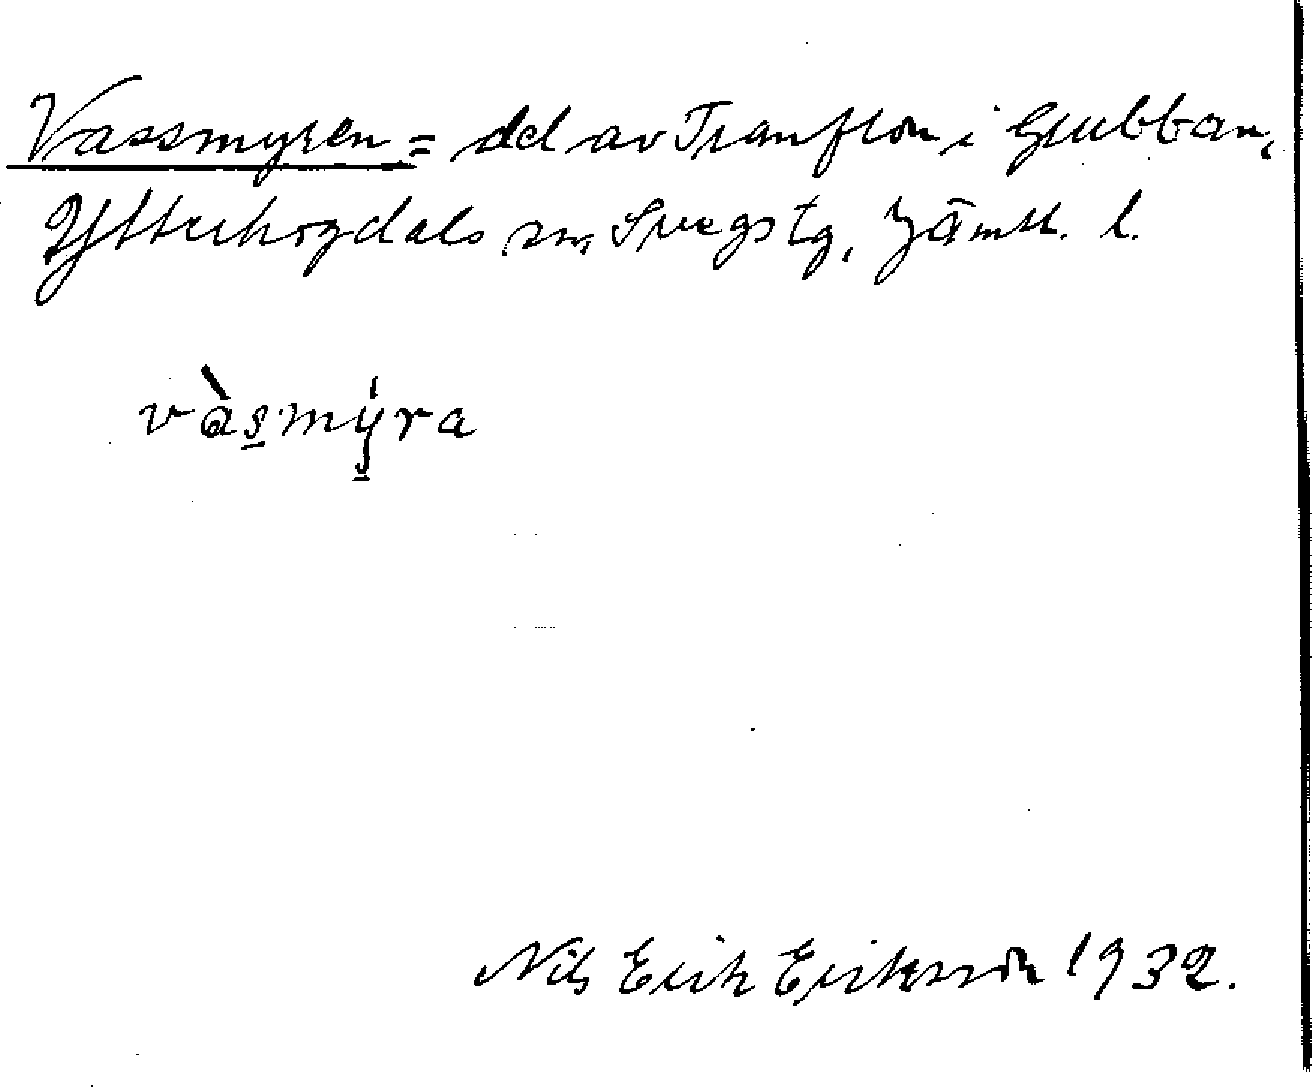 Vassmyren = del av Tranflon i Grubban,
Ytterhogdals sn, Svegs tg, Jämtl. l.
vàs̱mý̱ra
Nils Erik Eriksson 1932.